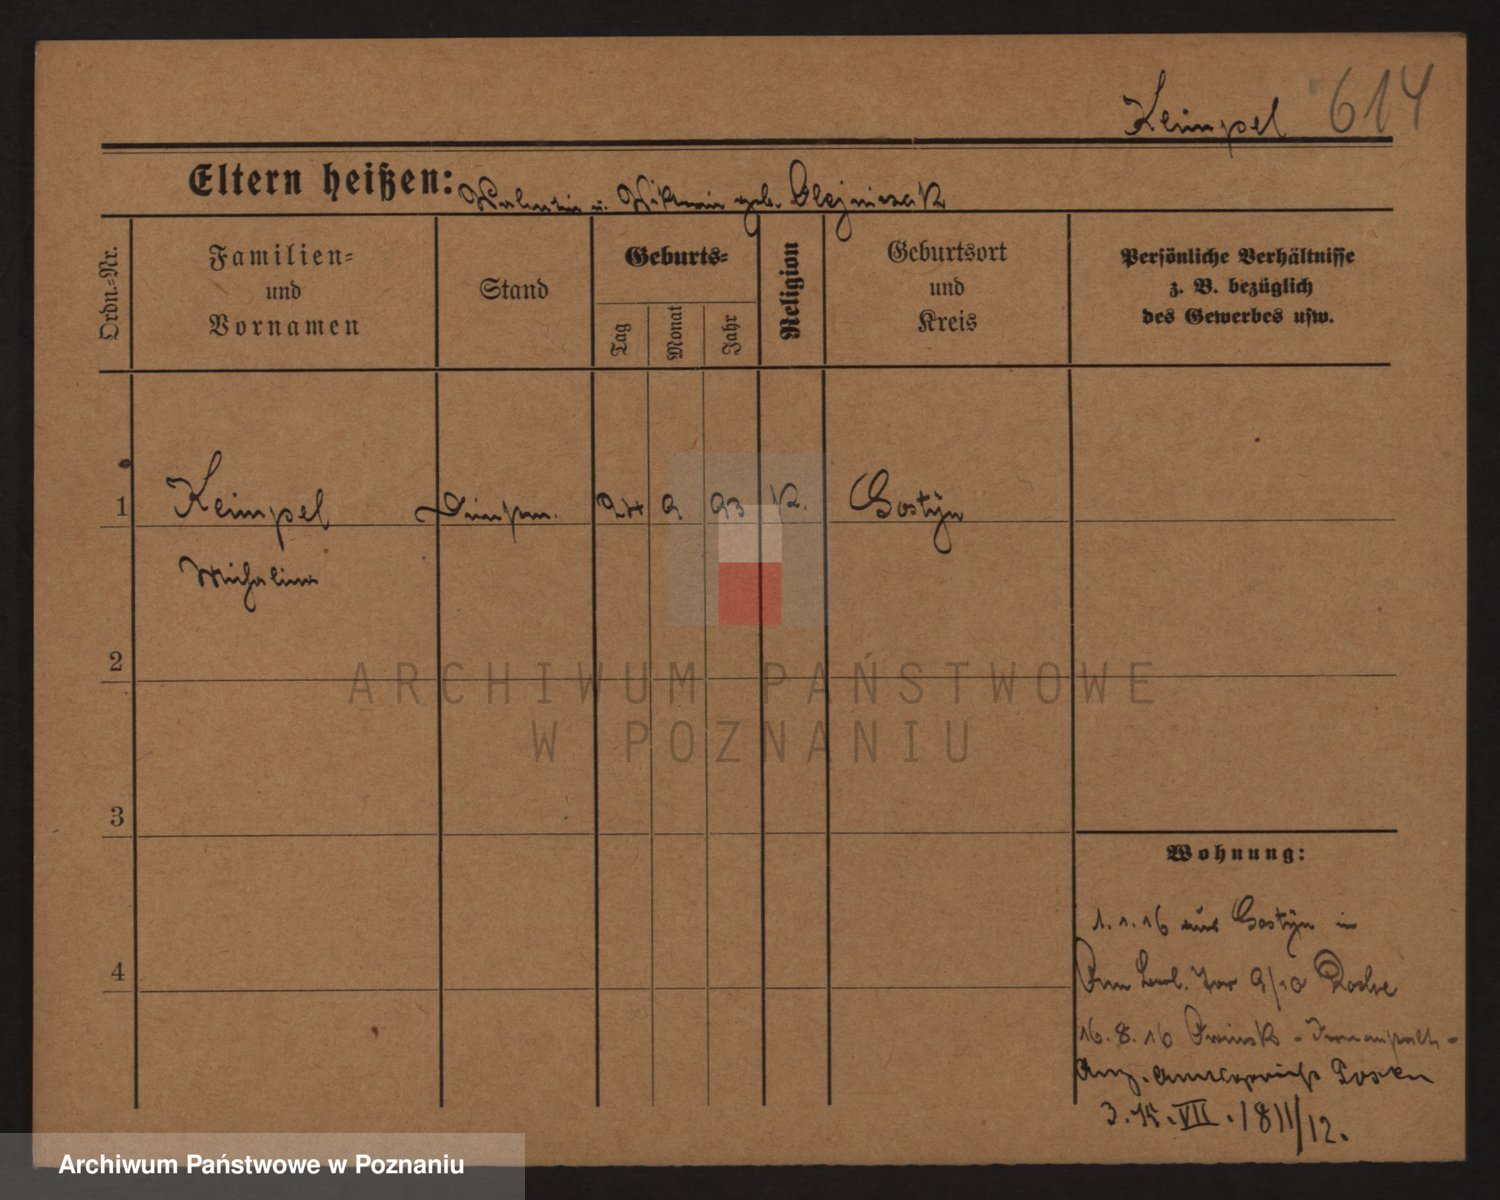 Keimpel 614
Eltern heißen: Valentin u. Viktoria geb. Olejniczak
Ordn.-Nr.
Familien-
und
Vornamen
Stand
Geburts-
Tag
Monat
Jahr
Religion
Geburtsort
und
Kreis
Persönliche Verhältnisse
z. B. bezüglich
des Gewerbes usw.
1 Keimpel 24 9 93 K. Gostyn
Michalina
2
ARCHIWUM PAŃSTWOWE
W POZNANIU
3
Wohnung:
1.1.16 aus Gostyn in
Tor 9/10
4
16.8.16
Posen
3. 15. VII. 1811/12.
Archiwum Państwowe w Poznaniu